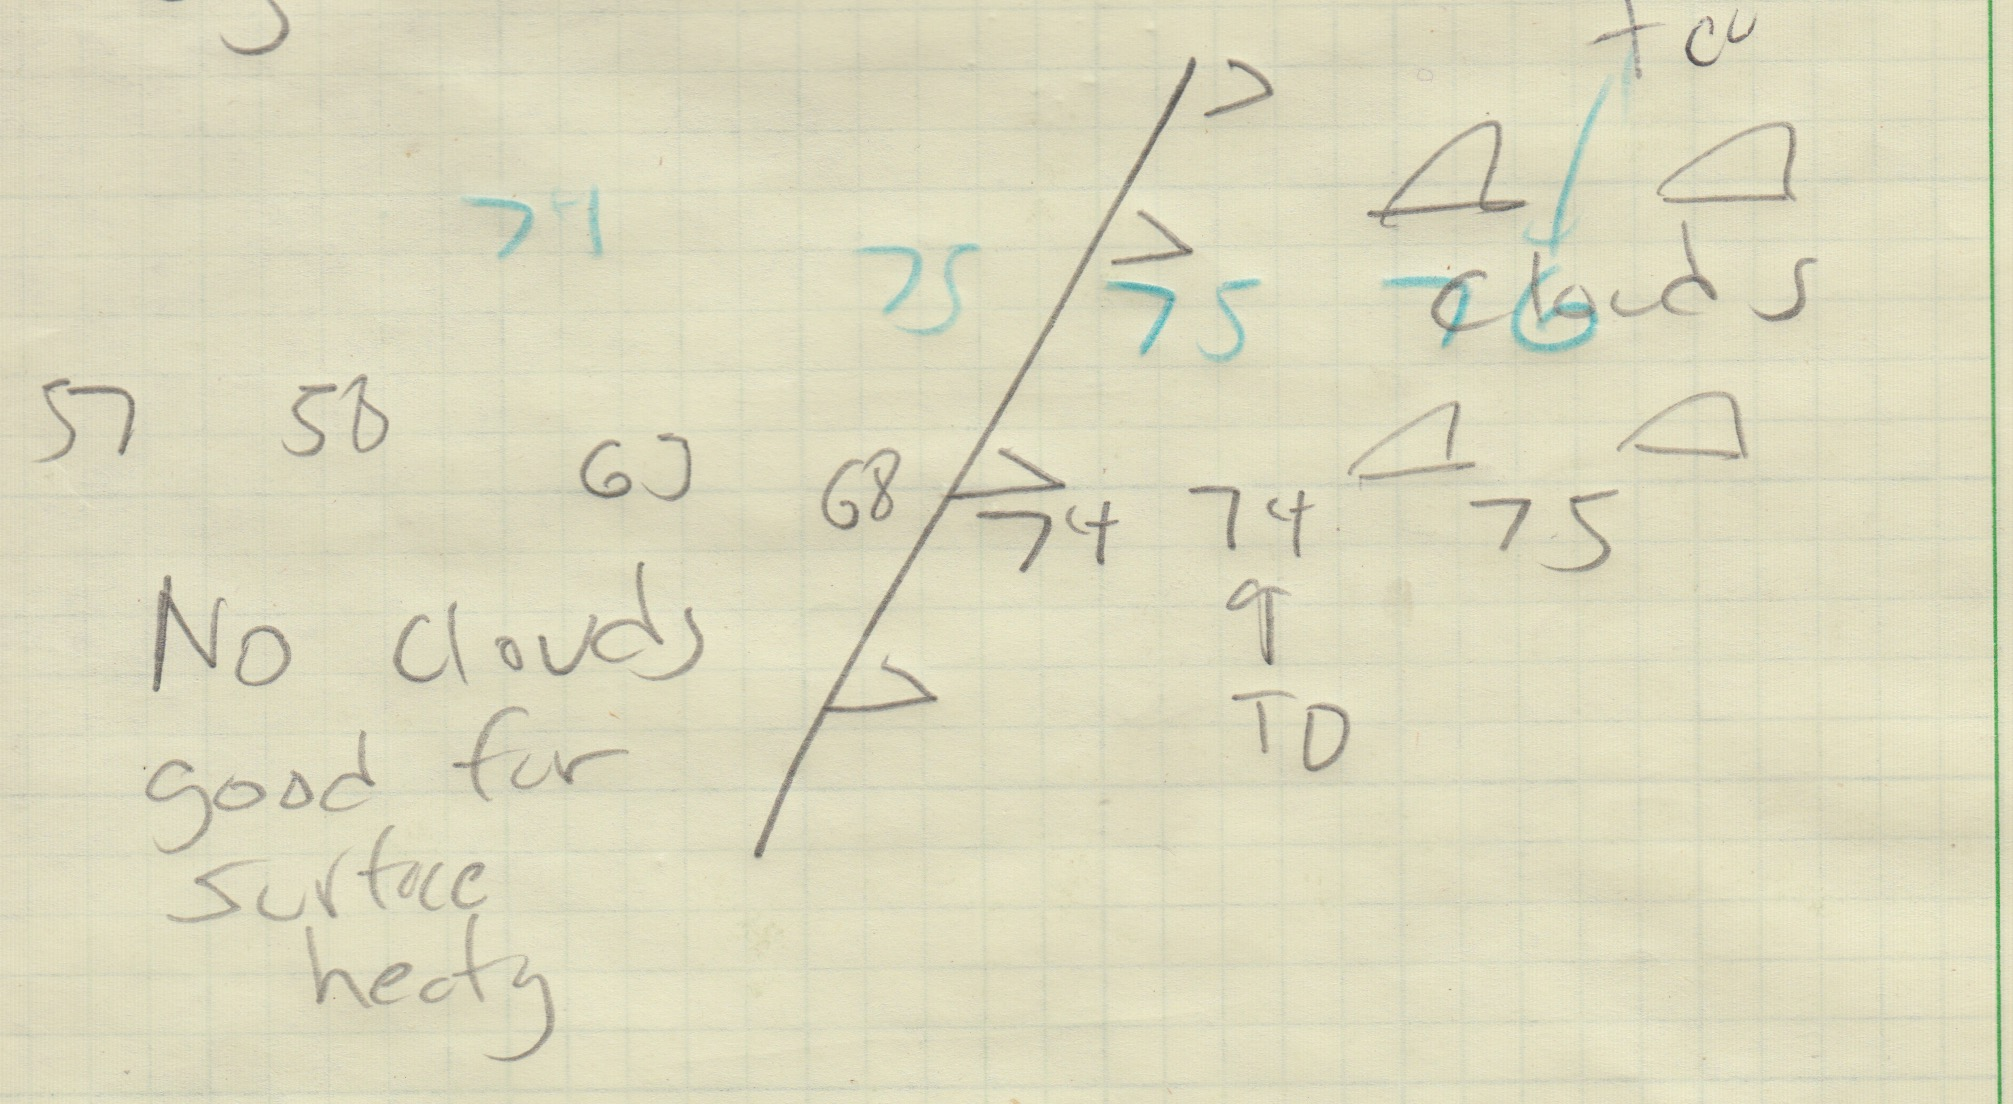 74 75 75 76
clouds
57 58 63 68 74 74 75
No clouds
TD
good for
surface
heatg